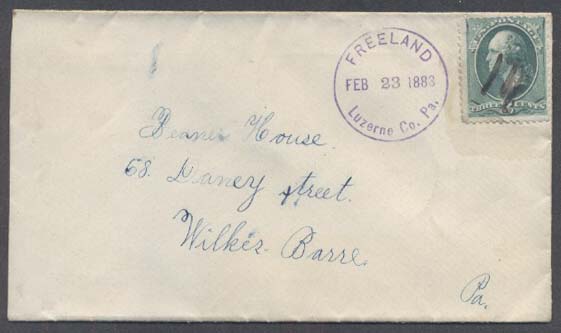 FREELAND
FEB 23 1883
Luzerne Co. Pa.
THREE CENTS
House.
68. Daney street.
Wilkes-Barre
Pa.